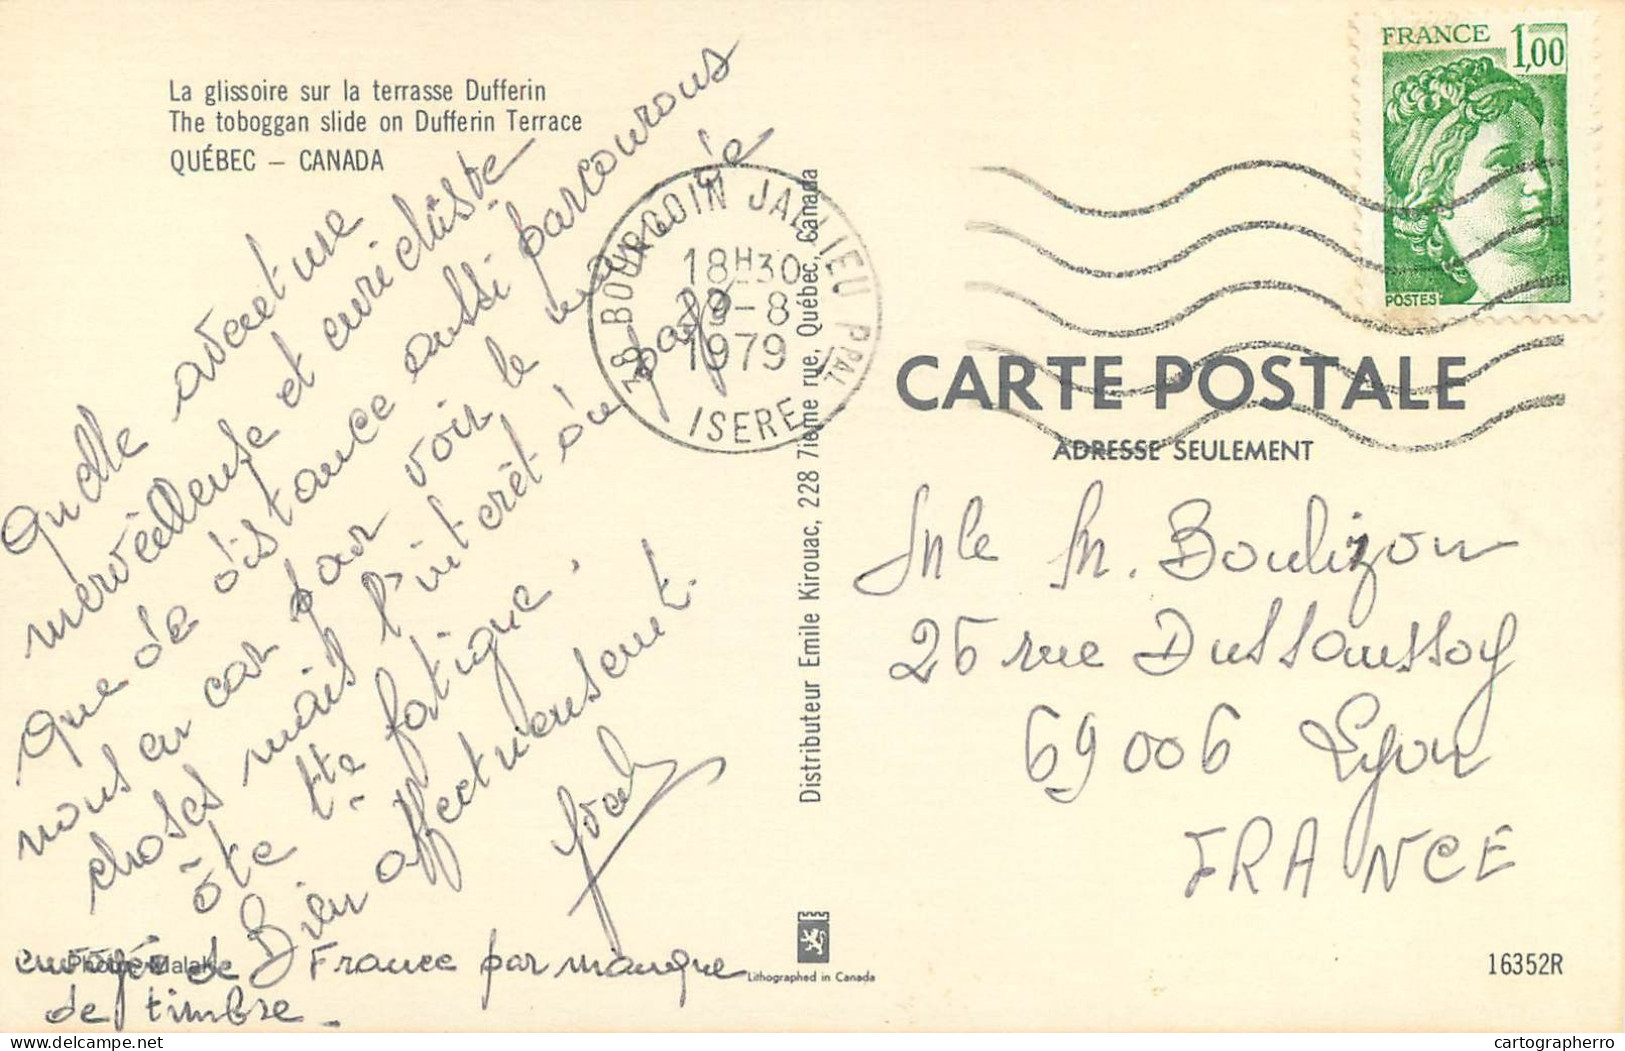 La glissoire sur la terrasse Dufferin
The toboggan slide on Dufferin Terrace
QUÉBEC – CANADA
Quelle aventure
merveilleuse et enrichiste
que de distance aussi parcourous
nous en car par voir le
choses mais l'intérêt du pays
ôte tte fatigue.
Bien affectueusement.
envoyée de France par manque
de timbre.
Photo: Malak
38 BOURGOIN JALLIEU PPAL
18H30
29-8
1979
ISERE
Distributeur Emile Kirouac, 228 7ième rue, Québec, Canada
Lithographed in Canada
FRANCE 1,00
POSTES
CARTE POSTALE
ADRESSE SEULEMENT
Mle M. Boulizon
25 rue Dussaussoy
69006 Lyon
FRANCE
16352R
cartographerro